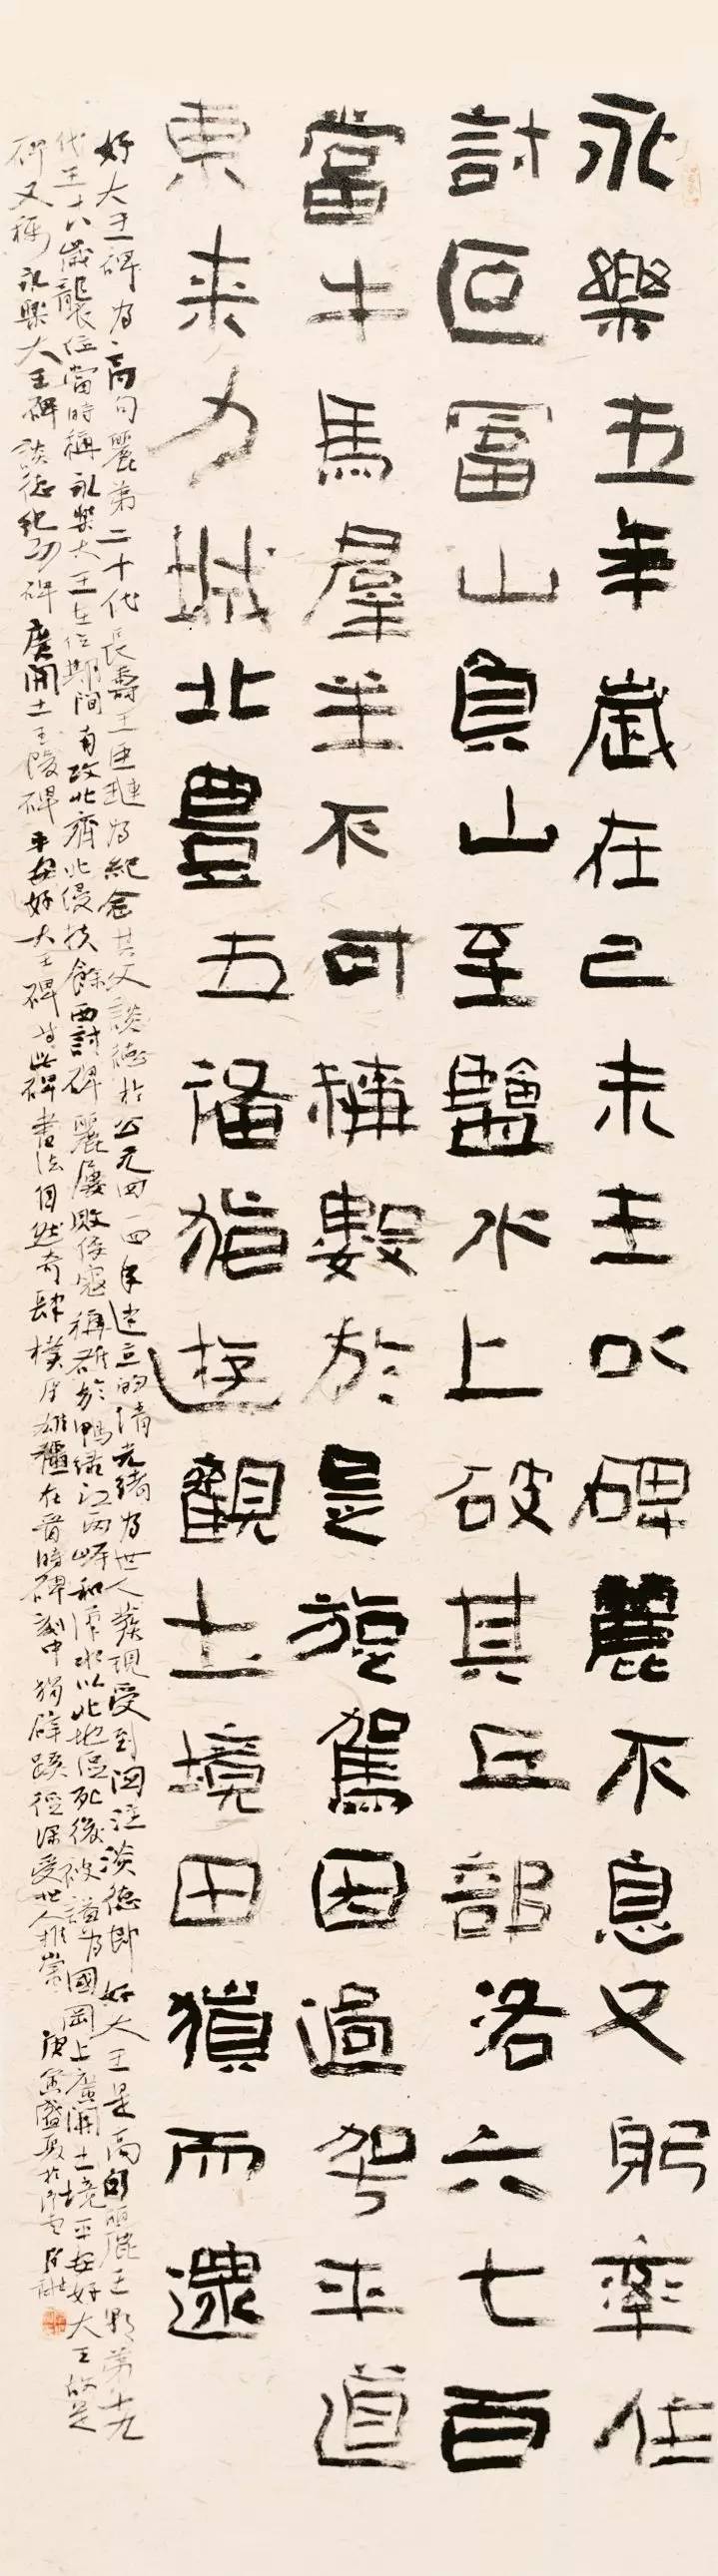 永樂五年歲在乙未王以碑麗不息又躬率住
討叵富山負山至鹽水上破其丘部洛六七百
當牛馬羣羊不可稱數於是旋駕因過駕平道
東来力城北豊五備猶遊觀土境田獵而還
好大王碑為高句麗第二十代長壽王巨璉為紀念其父談德於公元四一四年建立的清光緒為世人發現受到関注談德即好大王是高句麗王朝第十九
代王十八歲襲位當時稱永樂大王在位期間南攻北齊北侵扶餘西討碑麗屢敗倭寇稱雄於鴨綠江兩岸和漢水以北地區死後被諡為國岡上廣開土境平安好大王故是
碑又稱永樂大王碑談德紀功碑廣開土王陵碑平安好大王碑等此碑書法自然奇肆樸厚雄強在晉時碑刻中獨辟蹊徑深受世人推崇庚寅盛夏於